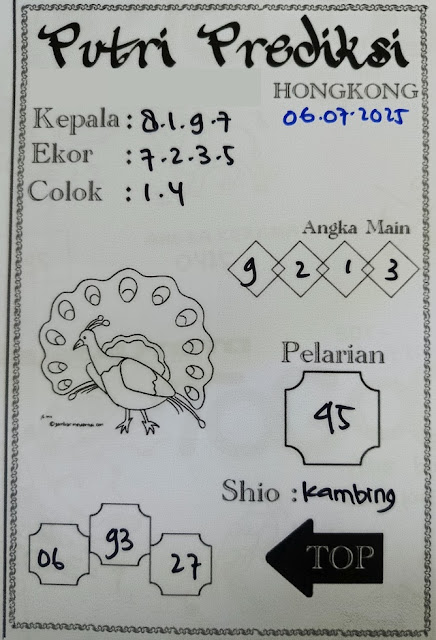 Putri Prediksi
HONGKONG
06.07.2025
Kepala : 8.1.9.7
Ekor : 7.2.3.5
Colok : 1.4
Angka Main
9 2 1 3
Pelarian
45
Shio : Kambing
06 93 27
TOP